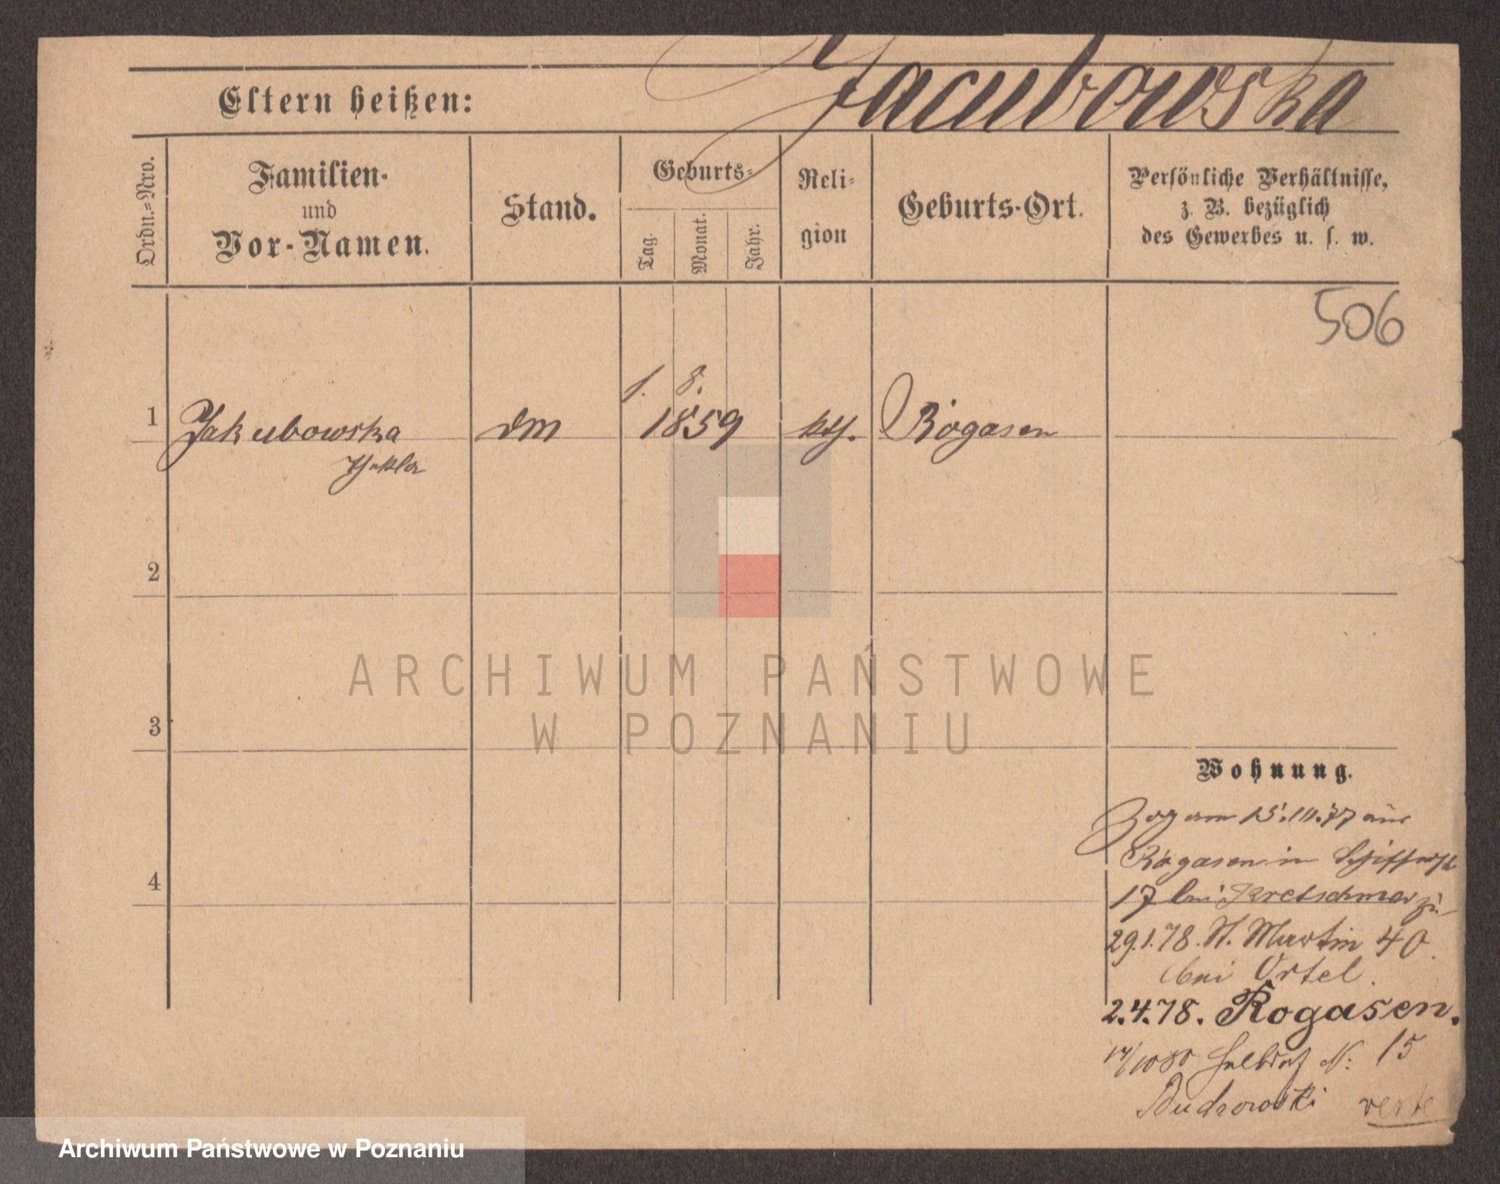 Jacubowska
Eltern heißen:
Ordn.=Nro.
Familien-
und
Vor-Namen.
Stand.
Geburts-
Tag.
Monat.
Jahr.
Reli-
gion
Geburts-Ort.
Persönliche Verhältnisse,
z. B. bezüglich
des Gewerbes u. s. w.
506
1. 8.
1 Jakubowska dM 1859 kth. Rogasen
Thekla
2
3
4
Wohnung.
Zog am 15.10.77 aus
Rogasen in
17 bei Kretschmer
29.1.78. St. Martin 40.
bei Ortel.
2.4.78. Rogasen.
14/10 80 Halbdorf N: 15
verte
ARCHIWUM PAŃSTWOWE
W POZNANIU
Archiwum Państwowe w Poznaniu